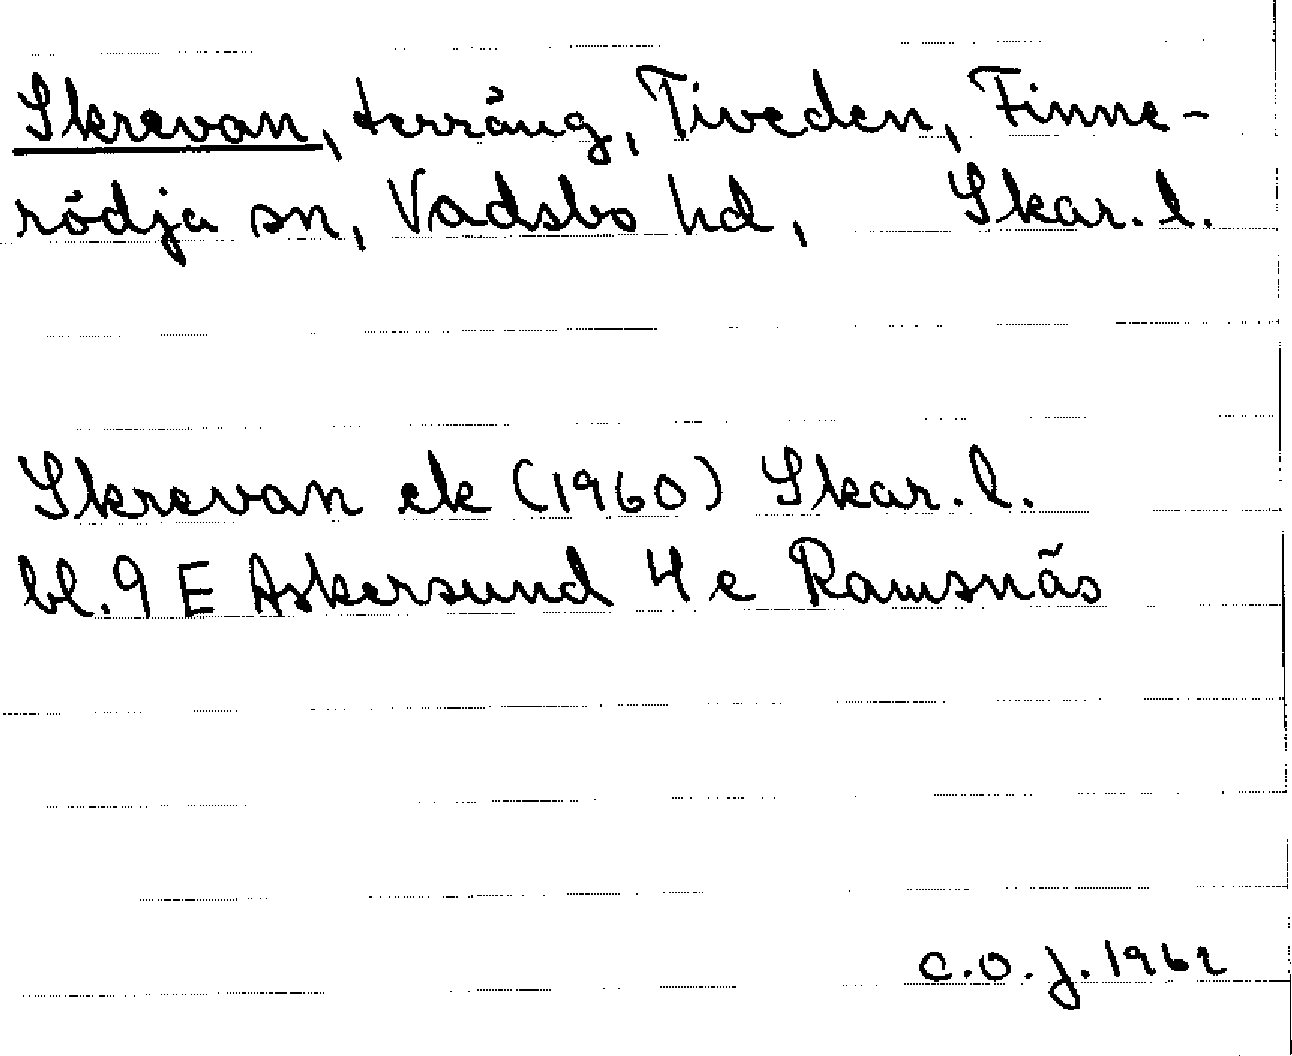 Skrevan, terräng, Tiveden, Finne-
rödja sn, Vadsbo hd, Skar. l.
Skrevan ek (1960) Skar. l.
bl. 9 E Askersund 4 e Ramsnäs
C.O.J. 1962